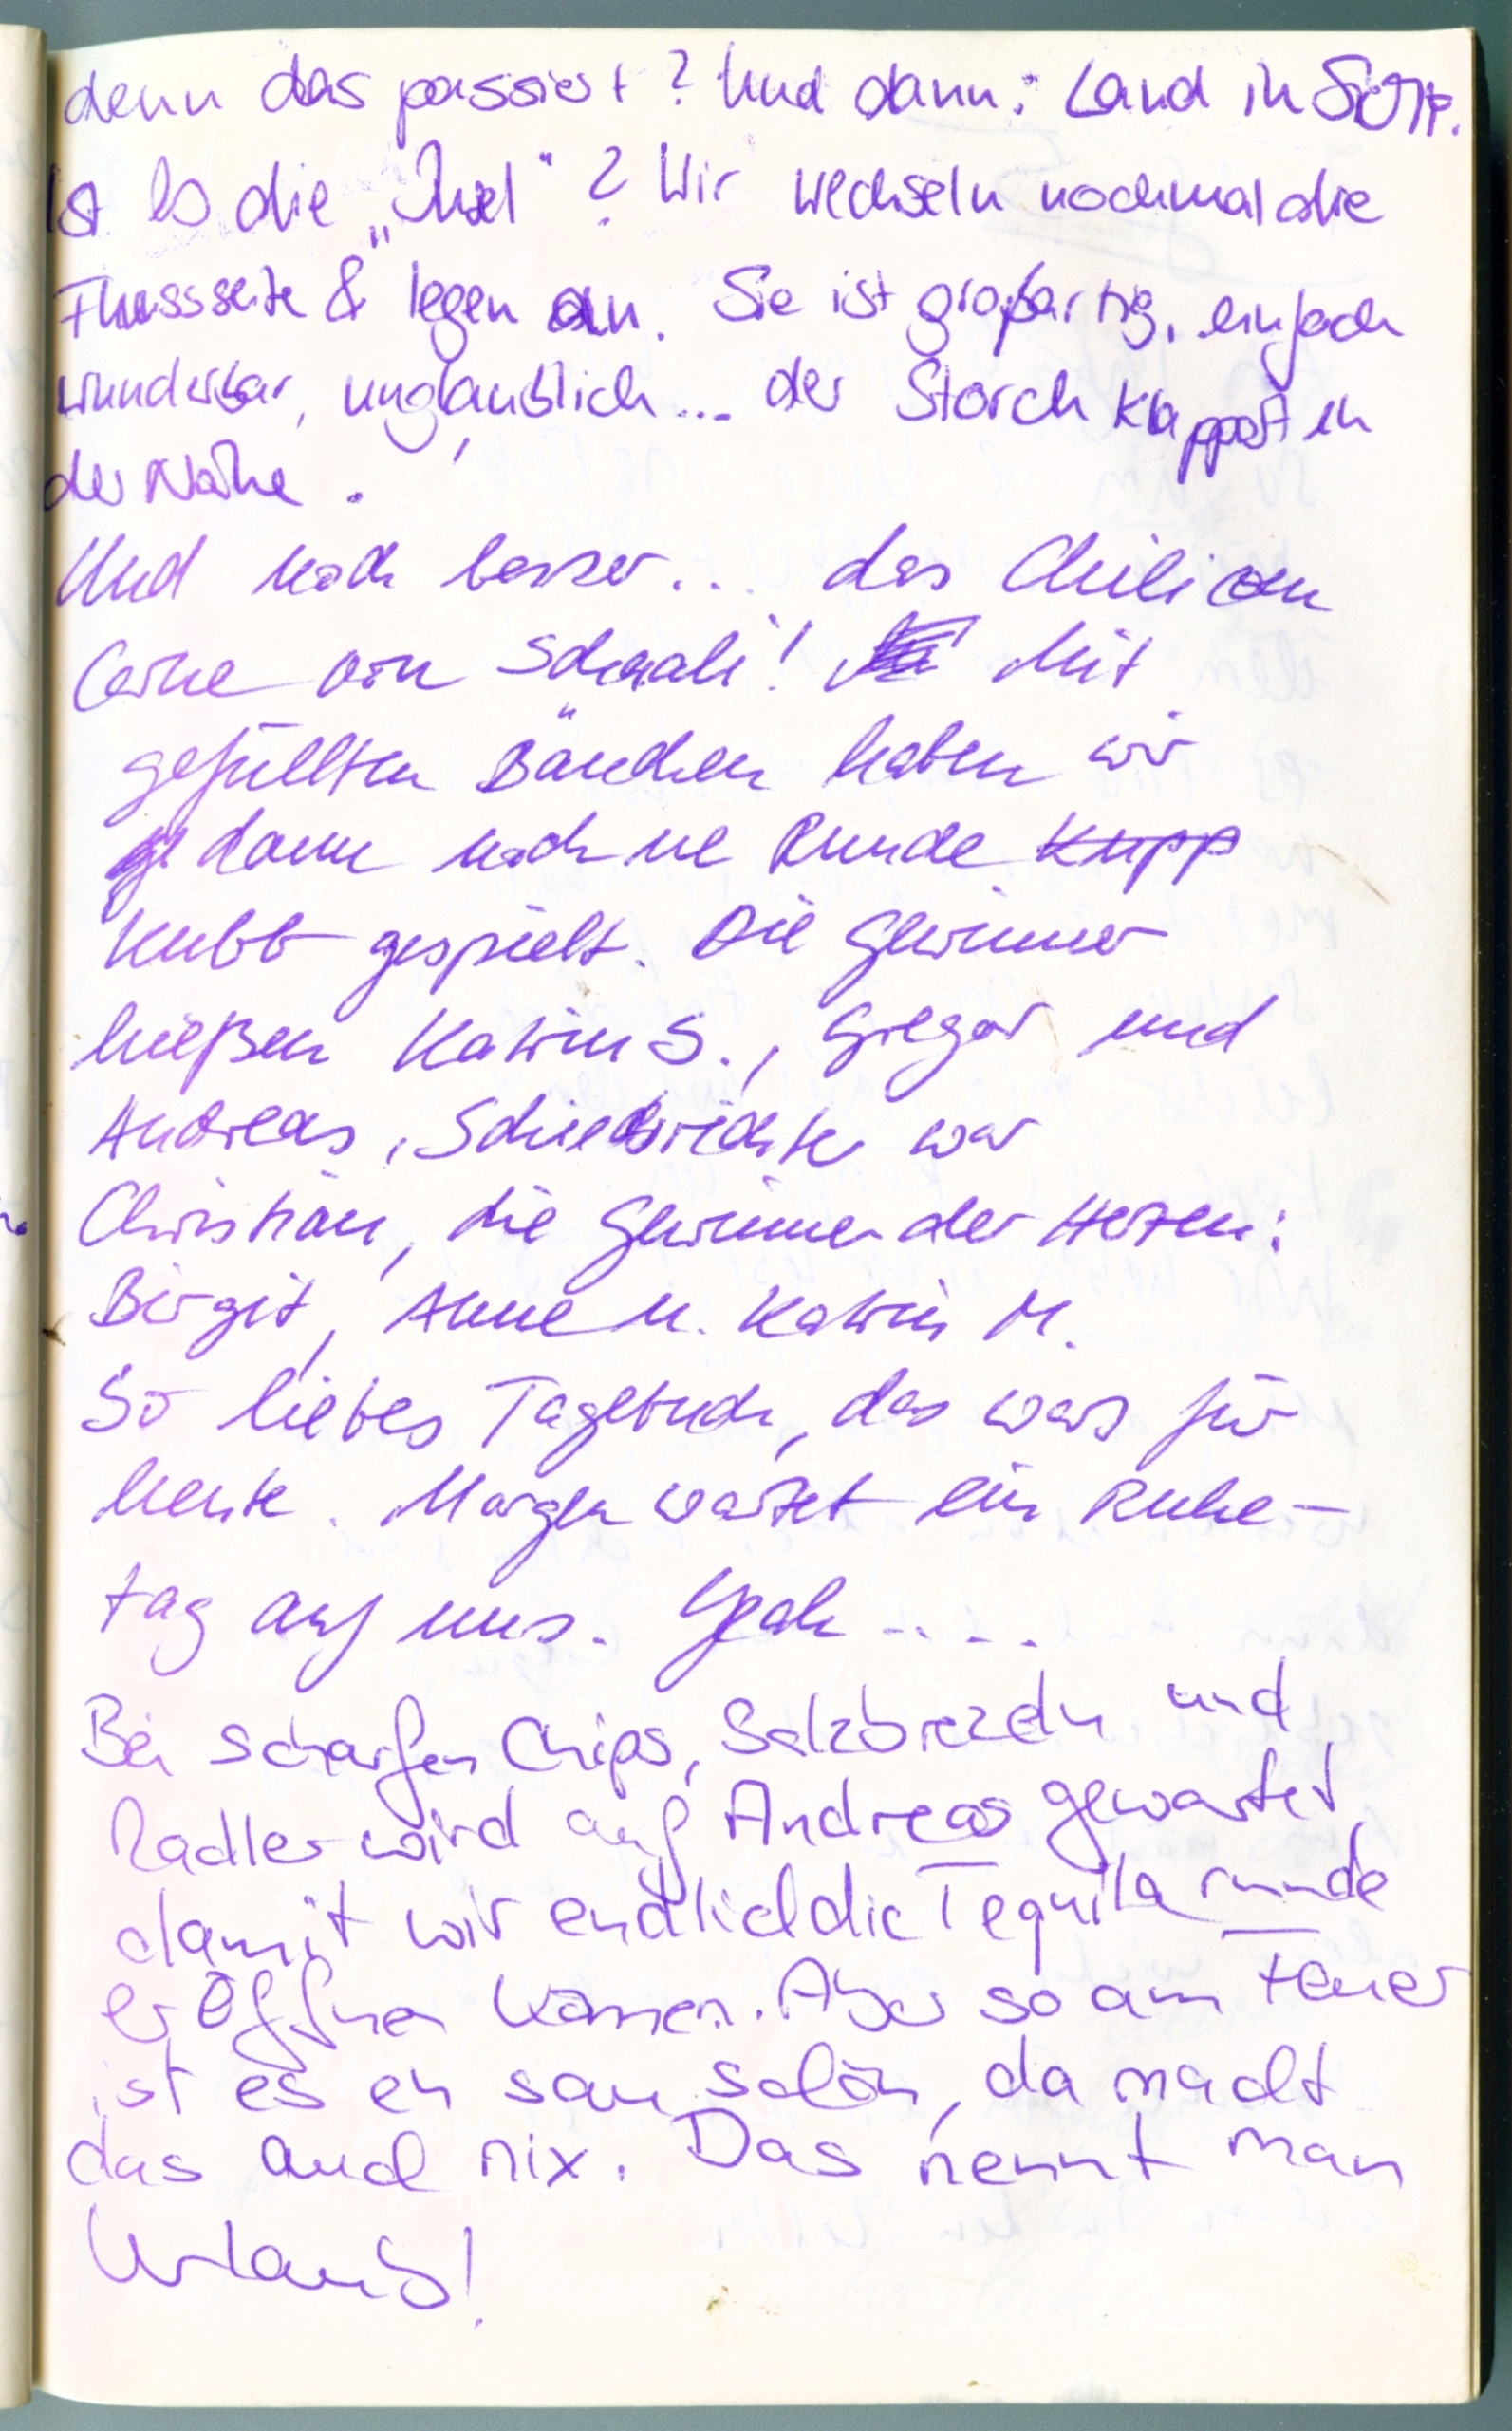 denn das passiert? Und dann: Land in Sicht.
Ist es die „Insel"? Wir wechseln nochmal die
Flussseite & legen an. Sie ist großartig, einfach
wunderbar, unglaublich... der Storch klappert in
der Nähe.
Und noch besser... das Chili con
Carne von Schaali! Mit
gefüllten Bäuchen haben wir
dann noch ne Runde Kupp
Kubb gespielt. Die Gewinner
hießen Katrin S., Gregor und
Andreas, Schiedsrichter war
Christian, die Gewinner der Herzen:
Birgit, Anne u. Katrin M.
So liebes Tagebuch, das war's für
heute. Morgen wartet ein Ruhe-
tag auf uns. Yeah....
Bei scharfen Chips, Salzbrezeln und
Radler wird auf Andreas gewartet,
damit wir endlich die Tequila runde
eröffnen können. Aber so am Feuer
ist es eh sau schön, da macht
das auch nix. Das nennt man
Urlaub!